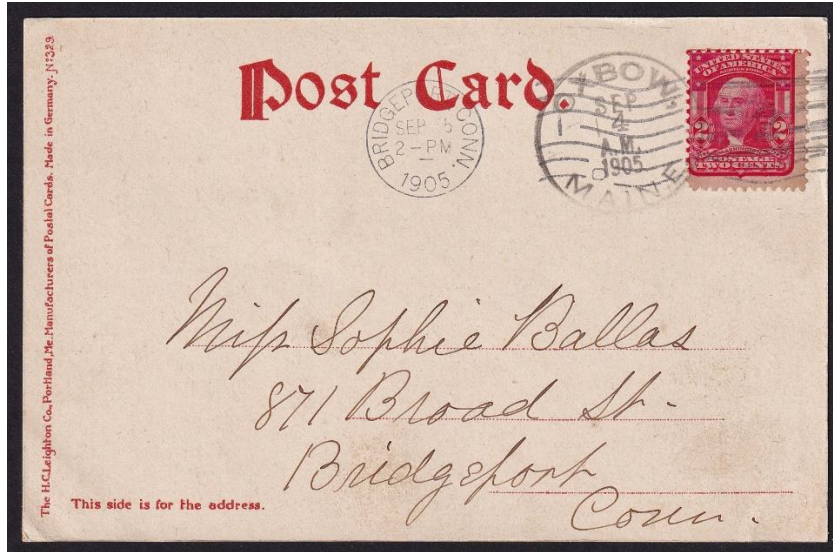 The H.C.Leighton Co., Portland, Me. Manufacturers of Postal Cards. Made in Germany. Nº 329.
Post Card.
BRIDGEPORT, CONN.
SEP 5
2-PM
1905
OXBOW,
SEP
4
A.M.
1905
MAINE
UNITED STATES
OF AMERICA
2 2
POSTAGE
TWO CENTS
Miss Sophie Ballas
871 Broad St-
Bridgeport
Conn.
This side is for the address.